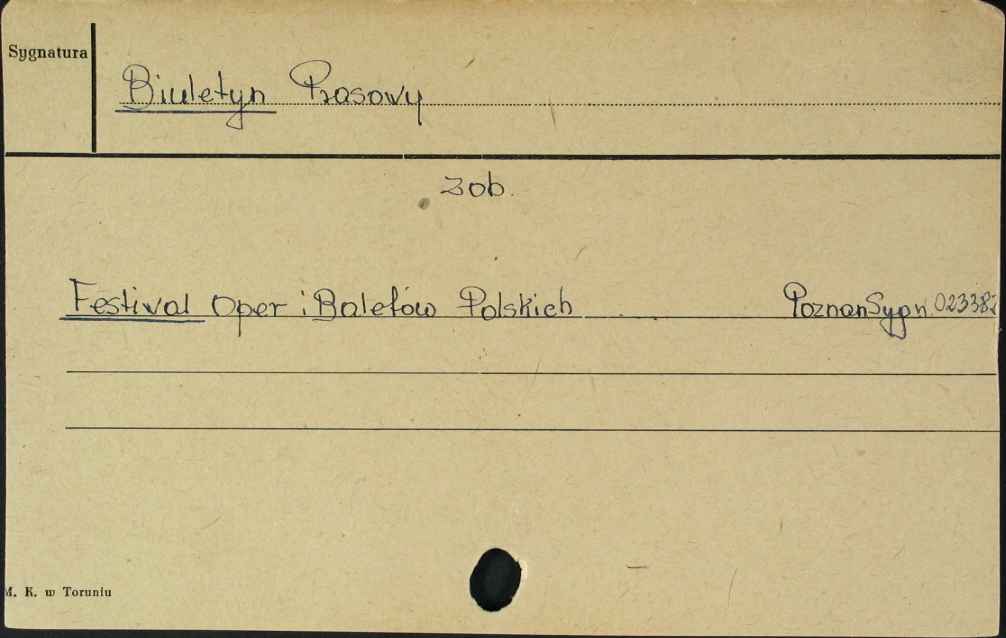 Sygnatura
Biuletyn Prasowy
zob.
Festival Oper i Baletów Polskich Poznań Sygn. 02338
M. K. w Toruniu